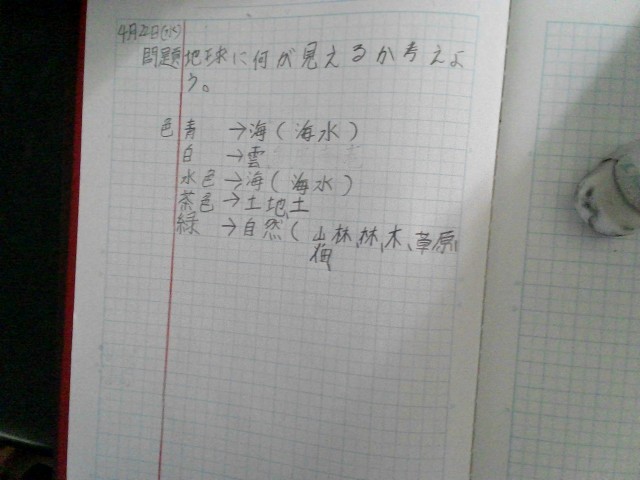 4月22日(水)
問題 地球に何が見えるか考えよ
う。
色 青 →海(海水)
白 →雲
水色→海(海水)
茶色→土地、土
緑 →自然(山林、林、木、草原、